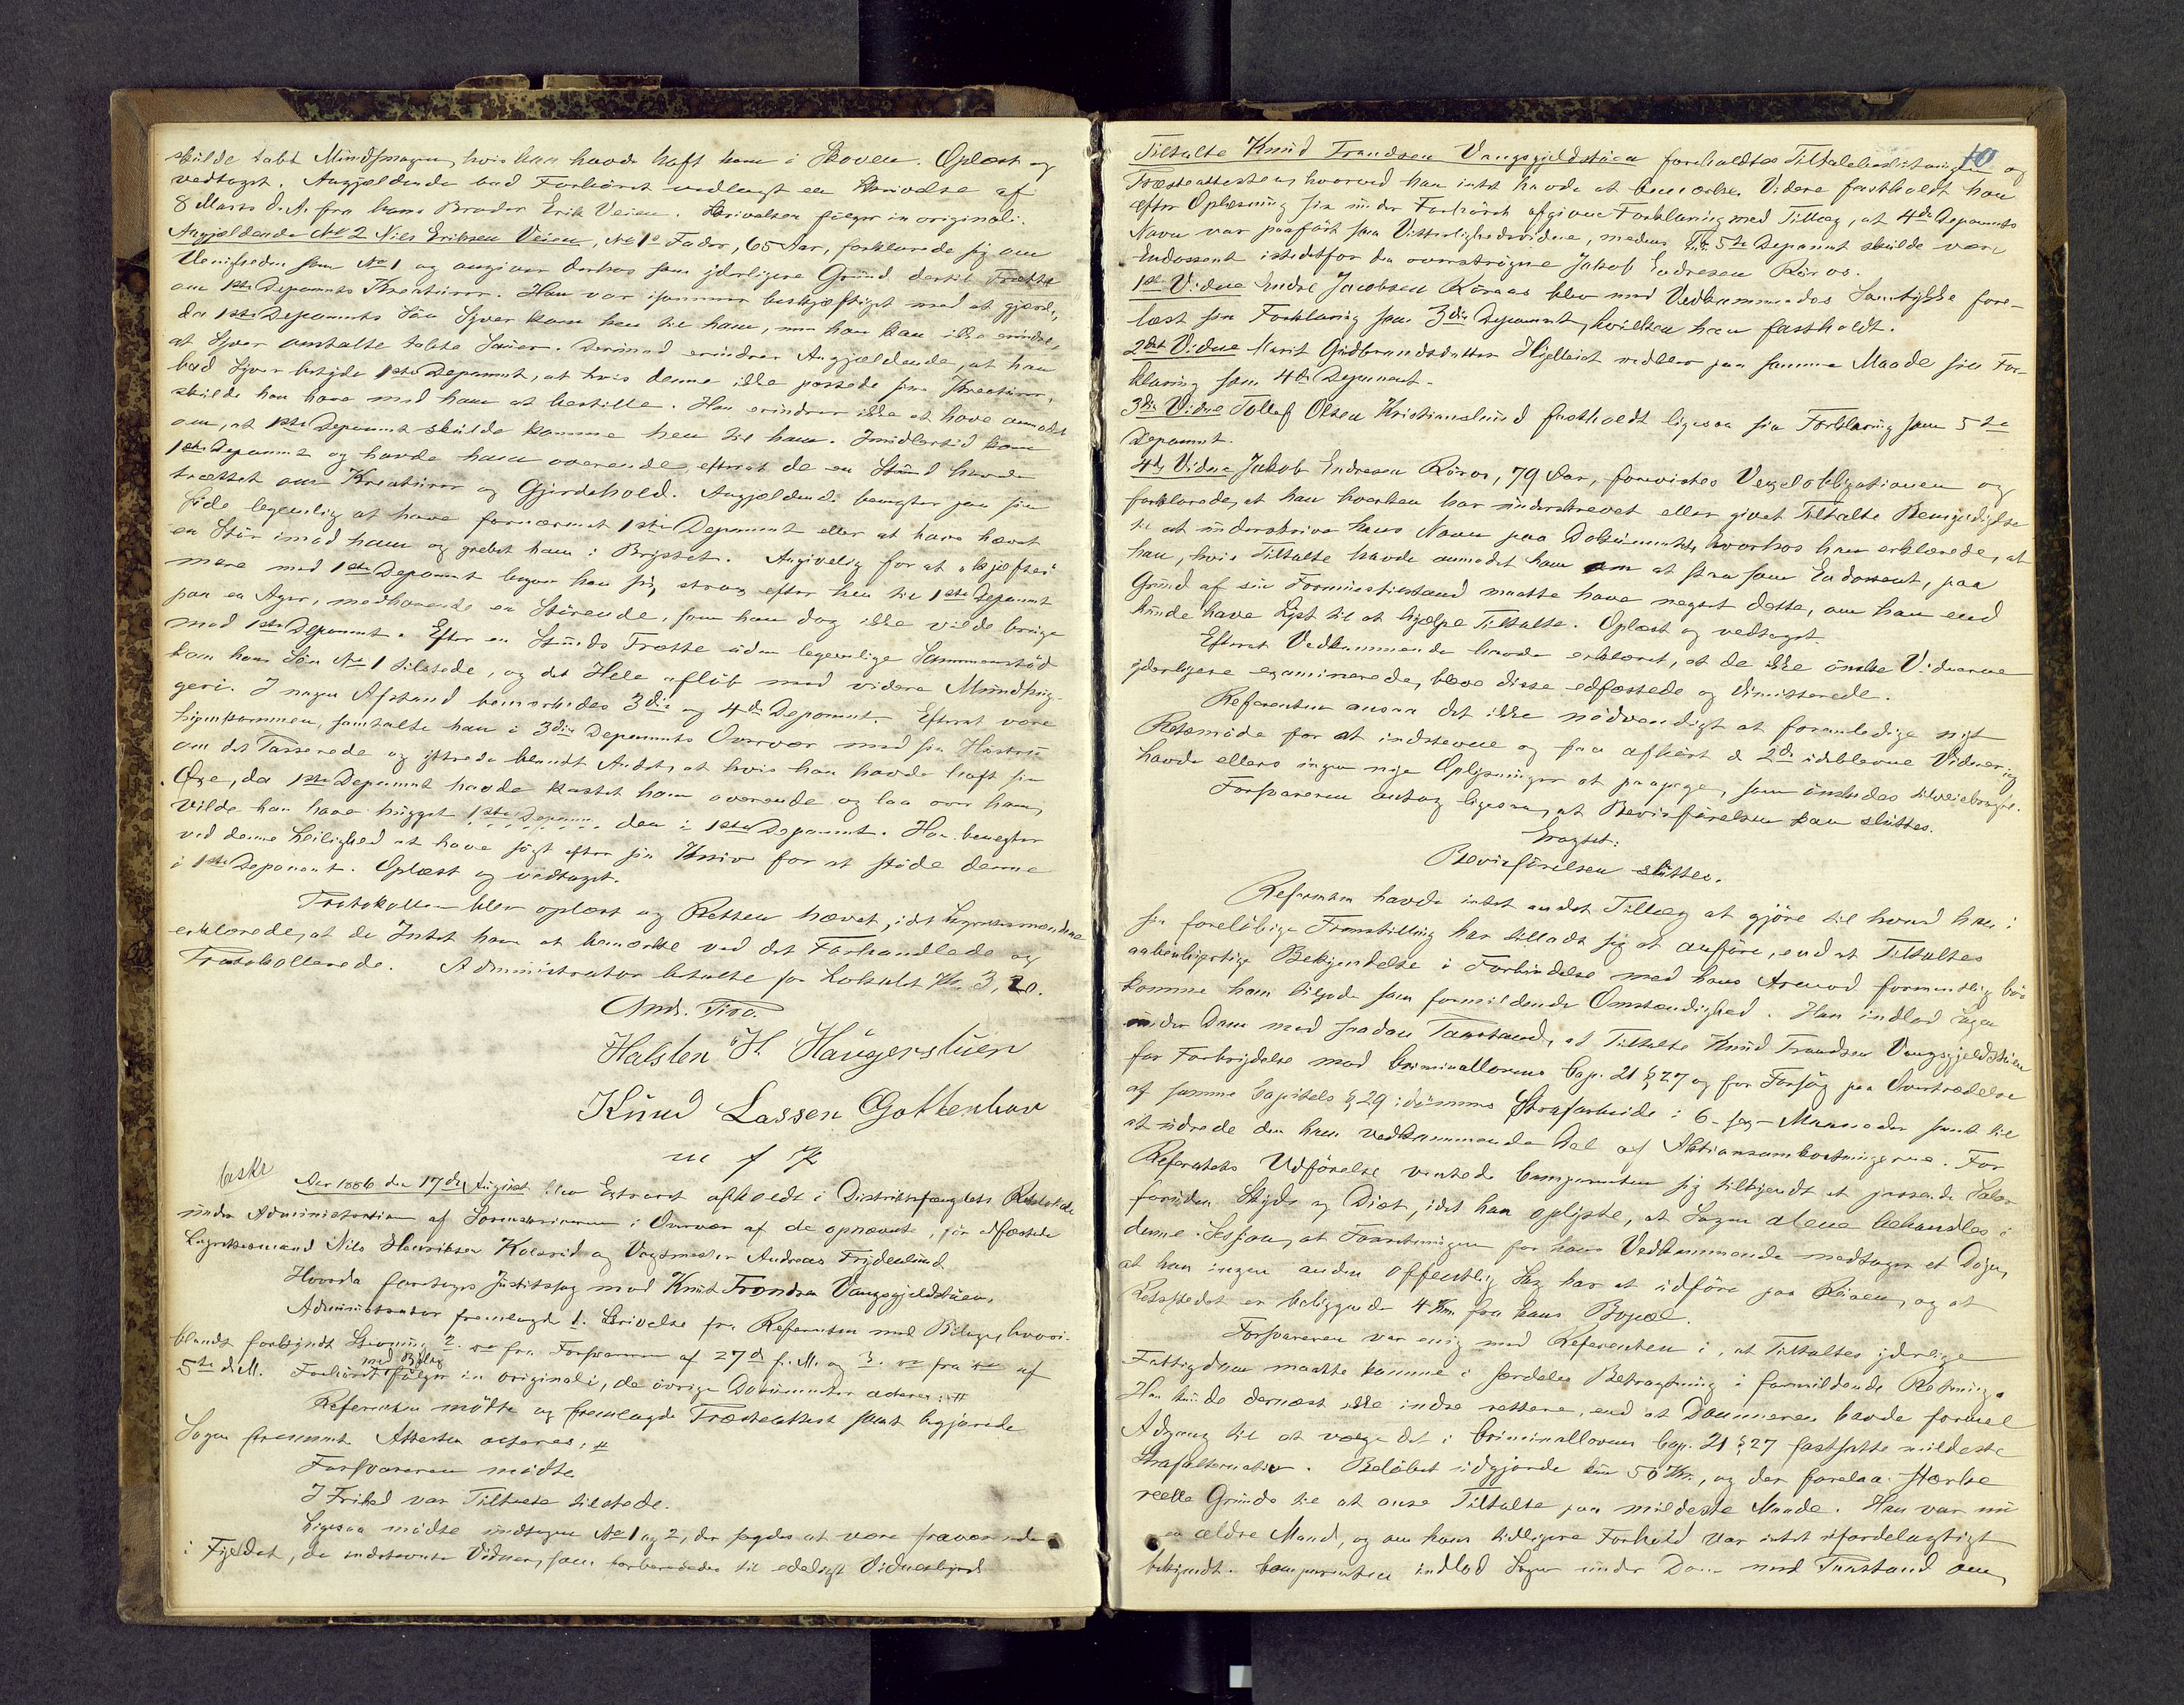 skulde tabt Mundsmagen, hvis han havde haft ham i Skoven. Oplæst og
vedtaget. Angjældende bad Forhöret vedlagt en Skrivelse af
8 Marts d. A. fra hans Broder Erik Veien. Skrivelsen fölger in originali.
Angjældende No 2 Nils Eriksen Veien, No 1s Fader, 65 Aar, forklarede sig om
Uenigheden som No 1 og angiver derhos som yderligere Grund dertil Trætte
om 1ste Deponents Kreaturer. Han var isommer beskjæftiget med at gjærde,
da 1ste Deponents Sön Syver kom hen til ham, men han kan ikke erindre,
at Syver omtalte tabte Sauer. Derimod erindrer Angjældende, at han
bad Syver betyde 1ste Deponent, at hvis denne ikke passede sine Kreaturer,
skulde han have med ham at bestille. Han erindrer ikke at have anmodet
om, at 1ste Deponent skulde komme hen til ham. Imidlertid kom
1ste Deponent og havde ham overende, efterat de en Stund havde
trættet om Kreaturer og Gjerdehold. Angjældende benegter paa sin
Side legemlig at have fornærmet 1ste Deponent eller at have hævet
en Stör imod ham og grebet ham i Brystet. Angivelig for at "kjæftes"
mere med 1ste Deponent begav han sig strax efter hen til 1ste Deponent
paa en Ager, medhavende en Störende, som han dog ikke vilde bruge
mod 1ste Deponent. Efter en Stunds Trætte uden legemlige Sammenstöd
kom hans Sön No 1 tilstede, og det Hele aflöb med videre Mundhug-
geri. I nogen Afstand bemærkedes 3die og 4de Deponent. Efterat være
hjemkommen, samtalte han i 3die Deponents Overvær med sin Hustru
om det Passerede og yttrede blandt Andet, at hvis han havde haft sin
Öxe, da 1ste Deponent havde kastet ham overende og laa over ham,
vilde han have hugget 1ste Deponent den i 1ste Deponent. Han benegter
ved denne Leilighed at have sögt efter sin Kniv for at stöde denne
i 1ste Deponent. Oplæst og vedtaget.
Protokollen blev oplæst og Retten hævet, idet Lagrettesmændene
erklærede, at de Intet have at bemærke ved det Forhandlede og
Protokollerede. Administrator betalte for Lokalet Kr. 3,20.
And. Fiva.
Halsten H. Haugerstuen
Knud Lassen Gottenborv
m f P
beskr
Aar 1886 den 17de August blev Extraret afholdt i Distriktsfængslets Retslokale
under Administration af Sorenskriveren i Overvær af de opnævnte, för edfæstede
Lagrettesmænd Nils Henriksen Kolsrud og Vagtmester Andreas Frydenlund
Hvorda foretoges Justitssag mod Knut Trondsen Vangsgjeldstuen.
Administrator fremlagde 1. Skrivelse fra Referenten med Bilage, hvori-
blandt forkyndt Stevning, 2. do fra Forsvareren af 27de f. M. og 3. do fra do af
5te d. M. Forhöret med Bilag fölger in originali, de övrige Dokumenter acteres. #
Referenten mödte og fremlagde Præsteattest samt begjærede
Sagen fremmet. Attesten acteres. #
Forsvareren mödte
I Frihed var Tiltalte tilstede.
Ligesaa mödte undtagen No 1 og 2, der sagdes at være fraværende
i Fjeldet, de indstevnte Vidner, som forberededes til edeligt Vidnesbyrd
10
Tiltalte Knud Trondsen Vangsgjeldstuen foreholdtes Tiltalebeslutningen og
Præsteattesten, hvorved han intet havde at bemærke. Videre fastholdt han
efter Oplæsning sin under Forhöret afgivne Forklaring med Tillæg, at 4de Deponents
Navn var paaført som Vitterlighedsvidne, medens 5te Deponent skulde være
Endossent istedetfor den overstrøgne Jakob Endresen Röros.
1ste Vidne Endre Jacobsen Röraas blev med Vedkommendes Samtykke fore-
læst sin Forklaring som 3die Deponent, hvilken han fastholdt.
2det Vidne Marit Gudbrandsdatter Hjelleiet vedblev paa samme Maade sin For-
klaring som 4de Deponent.
3die Vidne Tollef Olsen Kristianslund fastholdt ligesaa sin Forklaring som 5te
Deponent.
4de Vidne Jakob Endresen Röros, 79 Aar, forevistes Vexelobligationen og
forklarede, at han hverken har underskrevet eller givet Tiltalte Bemyndigelse
til at underskrive hans Navn paa Dokumentet, hvorhos han erklærede, at
han, hvis Tiltalte havde anmodet ham om at staa som Endossent, paa
Grund af sin Formuestilstand maatte have negtet dette, om han end
kunde have Lyst til at hjælpe Tiltalte. Oplæst og vedtaget.
Efterat Vedkommende havde erklæret, at de ikke önske Vidnerne
yderligere examinerede, bleve disse edfæstede og dimitterede.
Referenten ansaa det ikke nödvendigt at foranledige nyt
Retsmöde for at indstevne og faa afhört de 2de udeblevne Vidner og
havde ellers ingen nye Oplysninger at paapege, som önskedes tilveiebragte.
Forsvareren antog ligesaa, at Bevisförelsen kan sluttes.
Eragtet:
Bevisförelsen sluttes.
Referenten havde intet andet Tillæg at gjöre til hvad han i
sin forelöbige Fremstilling har tilladt sig at anföre, end at Tiltaltes
aabenhjertige Bekjendelse i Forbindelse med hans Armod formentlig bör
komme ham tilgode som formildende Omstændighed. Han indlod Sagen
under Dom med saadan Paastand, at Tiltalte Knud Trondsen Vangsgjeldstuen
for Forbrydelse mod Criminallovens Cap. 21 § 27 og for Forsög paa Overtrædelse
af samme Capitels § 29 idömmes Strafarbeide i 6 - sex - Maaneder samt til
at udrede den ham vedkommende Del af Aktionsomkostningerne. For
Referatets Udförelse ventede Comparenten sig tilkjendt et passende Salær
foruden Skyds og Diæt, idet han oplyste, at Sagen alene behandles i
denne Session, at Forretningen for hans Vedkommende medtager et Dögn,
at han ingen anden offentlig Sag har at udföre paa Reisen, og at
Retsstedet er beliggende 4 Km. fra hans Bopæl.
Forsvareren var enig med Referenten i, at Tiltaltes yderlige
Fattigdom maatte komme i særdeles Betragtning i formildende Retning.
Han kunde dernæst ikke indse rettere, end at Dommeren havde formel
Adgang til at vælge det i Criminallovens Cap. 21 § 27 fastsatte mildeste
Strafalternativ. Belöbet udgjorde kun 50 Kr., og der forelaa stærke
reelle Grunde til at anse Tiltalte paa mildeste Maade. Han var nu
en ældre Mand, og om hans tidligere Forhold var intet ufordelagtigt
bekjendt. Comparenten indlod Sagen under Dom med Paastand om,